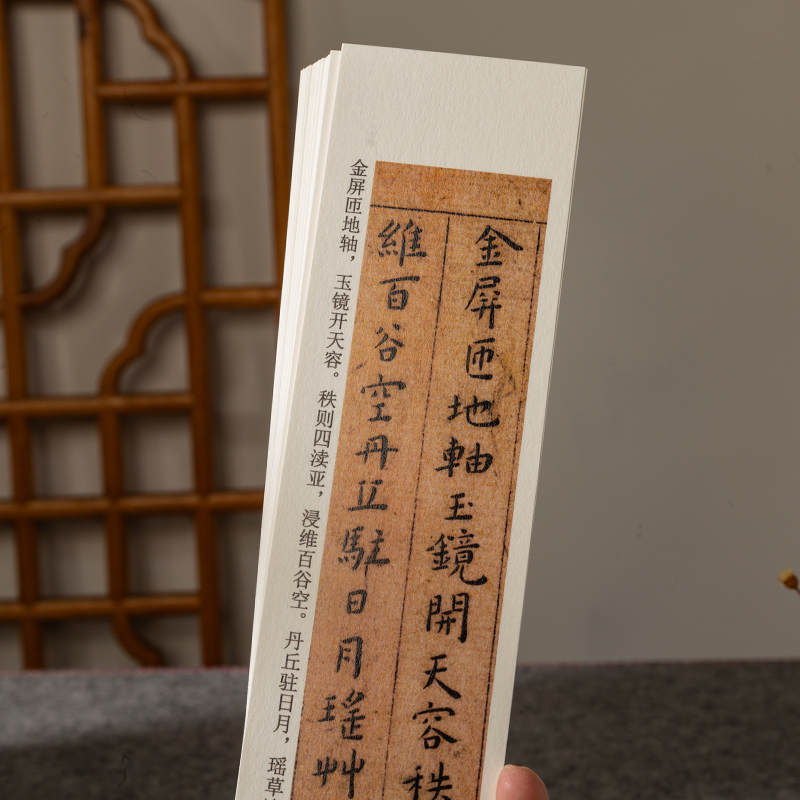 金屏匝地軸玉鏡開天容秩
維百谷空丹丘駐日月瑤艸
金屏匝地轴，玉镜开天容。秩则四渎亚，浸维百谷空。丹丘驻日月，瑶草